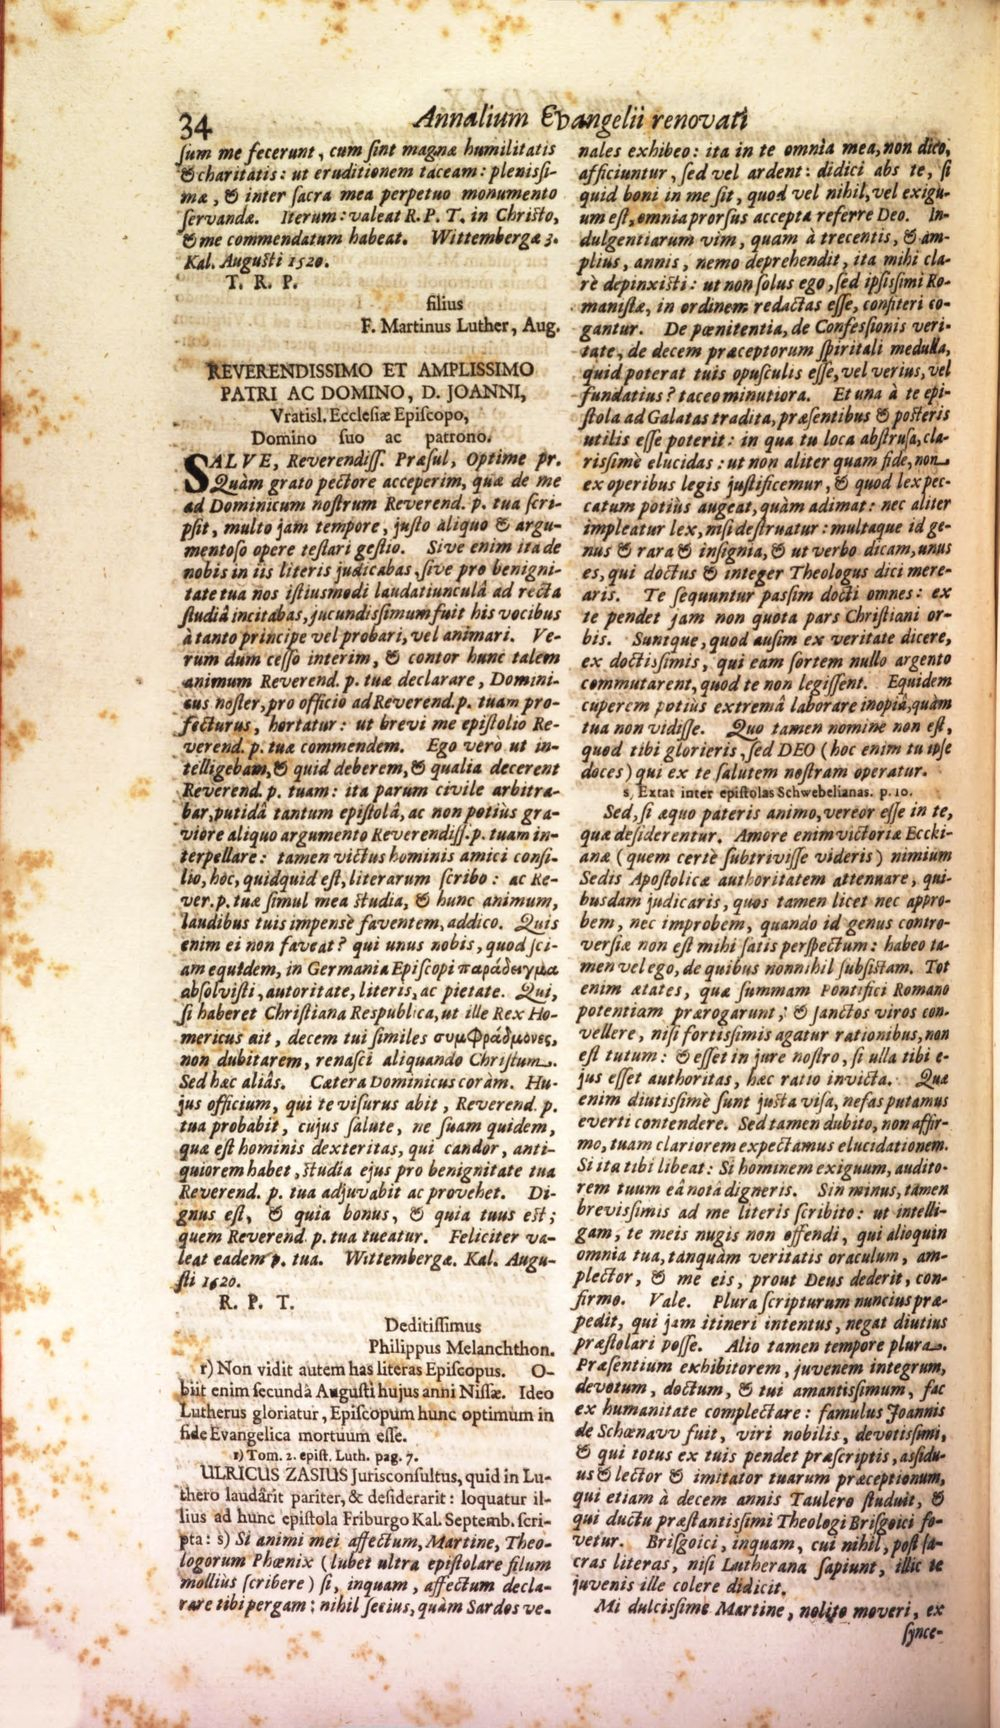 34
Annalium Evangelii renovati
sum me fecerunt, cum sint magnæ humilitatis
& charitatis: ut eruditionem taceam: plenissi-
mæ, & inter sacra mea perpetuo monumento
servandæ. Iterum: valeat R. P. T. in Christo,
& me commendatum habeat. Wittembergæ 3.
Kal. Augusti 1520.
T. R. P.
filius
F. Martinus Luther, Aug.
REVERENDISSIMO ET AMPLISSIMO
PATRI AC DOMINO, D. JOANNI,
Vratisl. Ecclesiæ Episcopo,
Domino suo ac patrono.
SALVE, Reverendiss. Præsul, Optime pr.
Quàm grato pectore acceperim, quæ de me
ad Dominicum nostrum Reverend. p. tua scri-
psit, multo jam tempore, justo aliquo & argu-
mentoso opere testari gestio. Sive enim ita de
nobis in iis literis judicabas, sive pro benigni-
tate tua nos istiusmodi laudatiunculâ ad recta
studiâ incitabas, jucundissimum fuit his vocibus
à tanto principe vel probari, vel animari. Ve-
rum dum cesso interim, & contor hunc talem
animum Reverend. p. tuæ declarare, Domini-
cus noster, pro officio ad Reverend. p. tuam pro-
fecturus, hortatur: ut brevi me epistolio Re-
verend. p. tuæ commendem. Ego vero ut in-
telligebam, & quid deberem, & qualia decerent
Reverend. p. tuam: ita parum civile arbitra-
bar, putidâ tantum epistolâ, ac non potiùs gra-
viore aliquo argumento Reverendiss. p. tuam in-
terpellare: tamen victus hominis amici consi-
lio, hoc, quidquid est, literarum scribo: ac Re-
ver. p. tuæ simul mea studia, & hunc animum,
laudibus tuis impensè faventem, addico. Quis
enim ei non faveat? qui unus nobis, quod sci-
am equidem, in Germania Episcopi παράδειγμα
absolvisti, autoritate, literis, ac pietate. Qui,
si haberet Christiana Respublica, ut ille Rex Ho-
mericus ait, decem tui similes συμφράδμονες,
non dubitarem, renasci aliquando Christum.
Sed hæc aliâs. Cætera Dominicus coràm. Hu-
jus officium, qui te visurus abit, Reverend. p.
tua probabit, cujus salute, ne suam quidem,
quæ est hominis dexteritas, qui candor, anti-
quiorem habet, studia ejus pro benignitate tua
Reverend. p. tua adjuvabit ac provehet. Di-
gnus est, & quia bonus, & quia tuus est;
quem Reverend. p. tua tueatur. Feliciter va-
leat eadem p. tua. Wittembergæ. Kal. Augu-
sti 1620.
R. P. T.
Deditissimus
Philippus Melanchthon.
r) Non vidit autem has literas Episcopus. O-
biit enim secundâ Augusti hujus anni Nissæ. Ideo
Lutherus gloriatur, Episcopum hunc optimum in
fide Evangelica mortuum esse.
r) Tom. 2. epist. Luth. pag. 7.
ULRICUS ZASIUS Jurisconsultus, quid in Lu-
thero laudârit pariter, & desiderarit: loquatur il-
lius ad hunc epistola Friburgo Kal. Septemb. scri-
pta: s) Si animi mei affectum, Martine, Theo-
logorum Phœnix (lubet ultra epistolare filum
molliùs scribere) si, inquam, affectum decla-
rare tibi pergam: nihil seciùs, quàm Sardos ve-
nales exhibeo: ita in te omnia mea, non dico,
afficiuntur, sed vel ardent: didici abs te, si
quid boni in me sit, quod vel nihil, vel exigu-
um est, omnia prorsus accepta referre Deo. In-
dulgentiarum vim, quam à trecentis, & am-
plius, annis, nemo deprehendit, ita mihi cla-
rè depinxisti: ut non solus ego, sed ipsissimi Ro-
manistæ, in ordinem redactas esse, confiteri co-
gantur. De pœnitentia, de Confessionis veri-
tate, de decem præceptorum spiritali medulla,
quid poterat tuis opusculis esse, vel verius, vel
fundatius? taceo minutiora. Et una à te epi-
stola ad Galatas tradita, præsentibus & posteris
utilis esse poterit: in qua tu loca abstrusa, cla-
rissimè elucidas: ut non aliter quam fide, non
ex operibus legis justificemur, & quod lex pec-
catum potiùs augeat, quàm adimat: nec aliter
impleatur lex, nisi destruatur: multaque id ge-
nus & rara & insignia, & ut verbo dicam, unus
es, qui doctus & integer Theologus dici mere-
aris. Te sequuntur passim docti omnes: ex
te pendet jam non quota pars Christiani or-
bis. Suntque, quod ausim ex veritate dicere,
ex doctissimis, qui eam sortem nullo argento
commutarent, quod te non legissent. Equidem
cuperem potiùs extremâ laborare inopiâ, quàm
tua non vidisse. Quo tamen nomine non est,
quod tibi glorieris, sed DEO (hoc enim tu ipse
doces) qui ex te salutem nostram operatur.
s, Extat inter epistolas Schwebelianas. p. 10.
Sed, si æquo pateris animo, vereor esse in te,
quæ desiderentur. Amore enim victoriæ Eccki-
anæ (quem certè subtrivisse videris) nimium
Sedis Apostolicæ authoritatem attenuare, qui-
busdam judicaris, quos tamen licet nec appro-
bem, nec improbem, quando id genus contro-
versiæ non est mihi satis perspectum: habeo ta-
men vel ego, de quibus nonnihil subsistam. Tot
enim ætates, quæ summam Pontifici Romano
potentiam prærogarunt, & sanctos viros con-
vellere, nisi fortissimis agatur rationibus, non
est tutum: & esset in jure nostro, si ulla tibi e-
jus esset authoritas, hæc ratio invicta. Quæ
enim diutissimè sunt justa visa, nefas putamus
everti contendere. Sed tamen dubito, non affir-
mo, tuam clariorem expectamus elucidationem.
Si ita tibi libeat: Si hominem exiguum, audito-
rem tuum eâ notâ digneris. Sin minus, tamen
brevissimis ad me literis scribito: ut intelli-
gam, te meis nugis non offendi, qui alioquin
omnia tua, tanquam veritatis oraculum, am-
plector, & me eis, prout Deus dederit, con-
firmo. Vale. Plura scripturum nuncius præ-
pedit, qui jam itineri intentus, negat diutius
præstolari posse. Alio tamen tempore plura.
Præsentium exhibitorem, juvenem integrum,
devotum, doctum, & tui amantissimum, fac
ex humanitate complectare: famulus Joannis
de Schœnavv fuit, viri nobilis, devotissimi,
& qui totus ex tuis pendet præscriptis, assidu-
us & lector & imitator tuarum præceptionum,
qui etiam à decem annis Taulero studuit, &
qui ductu præstantissimi Theologi Brisgoici fo-
vetur. Brisgoici, inquam, cui nihil, post sa-
cras literas, nisi Lutherana sapiunt, illic te
juvenis ille colere didicit.
Mi dulcissime Martine, nolito moveri, ex
synce-